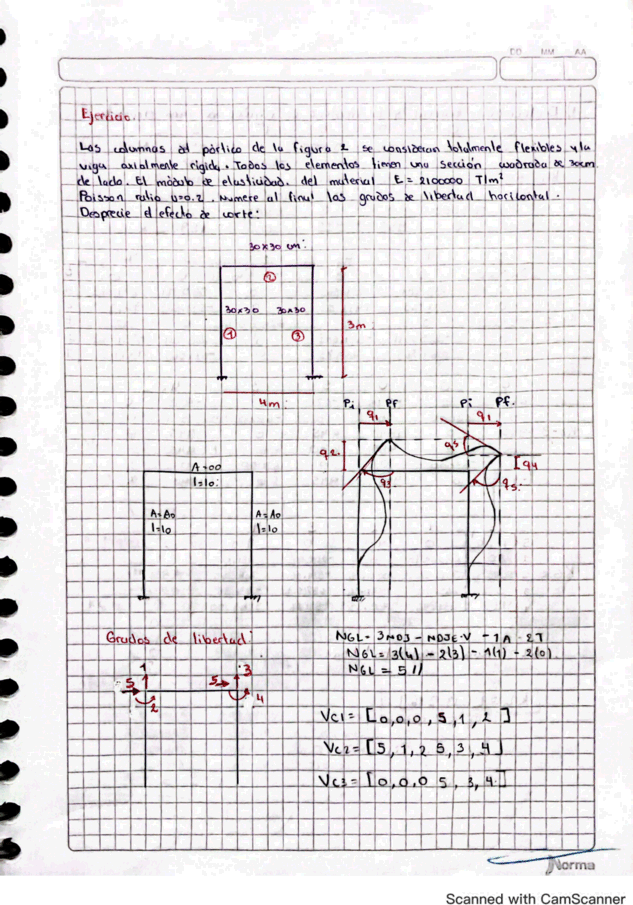 DD MM AA
Ejercicio.
Las columnas del pórtico de la figura 2 se consideran totalmente flexibles y la
viga axialmente rigida. Todos los elementos tienen una sección cuadrada de 30cm
de lado. El módulo de elasticidad. del material E = 2100000 T/m²
Poisson ratio u=0.2. Numere al final los grados de libertad horizontal.
Desprecie el efecto de corte:
30x30 cm:
2
30x30 30x30
1 3
3m
4m:
Pi Pf Pi Pf.
q1 q1
q2 q3 q5 q4
q5
A=∞
I=Io:
A=Ao A=Ao
I=Io I=Io
Grados de libertad:
NGL= 3NDJ - NDJE·V - 1A - 2T
NGL= 3(4) - 2(3) - 1(1) - 2(0)
NGL = 5//
1 3
5 5
2 4
Vc1= [0,0,0,5,1,2]
Vc2= [5,1,2 5,3,4]
Vc3= [0,0,0 5,3,4]
Norma
Scanned with CamScanner